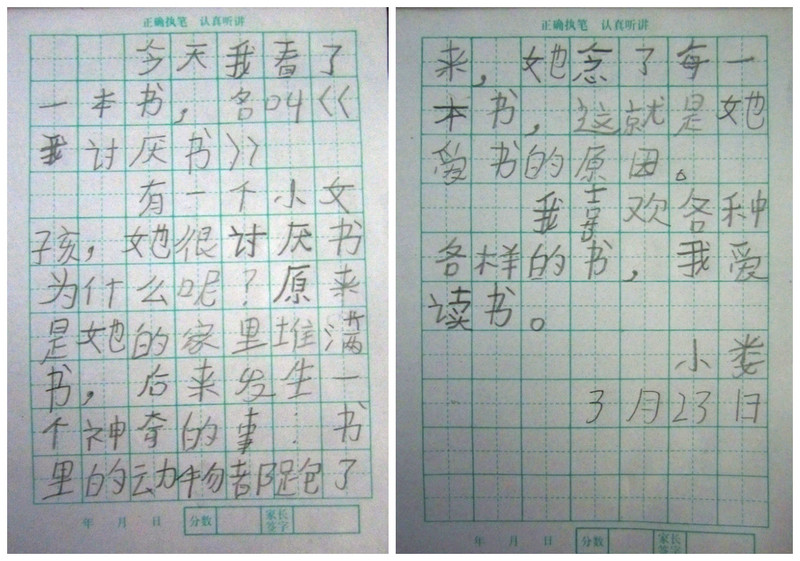 正确执笔 认真听讲
今天我看了
一本书，名叫《
我讨厌书》
有一个小女
孩，她很讨厌书
为什么呢？原来
是她的家里堆满
书，后来发生一
个神奇的事：书
里的动物都跑了
年 月 日 分数 家长签字
正确执笔 认真听讲
来，她念了每一
本书，这就是她
爱书的原因。
我喜欢各种
各样的书，我爱
读书。
小娄
3月23日
年 月 日 分数 家长签字